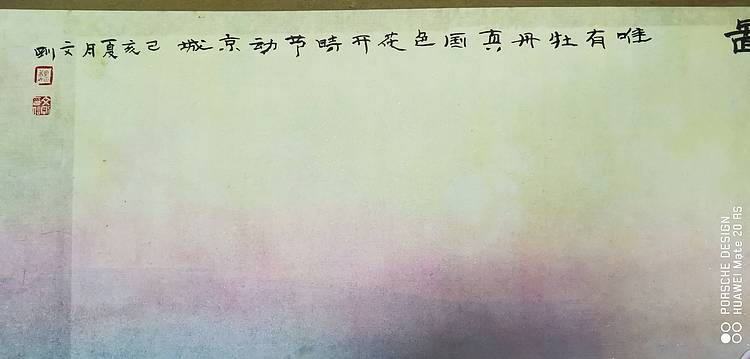 唯有牡丹真国色花开時节动京城 己亥夏月文
PORSCHE DESIGN
HUAWEI Mate 20 RS